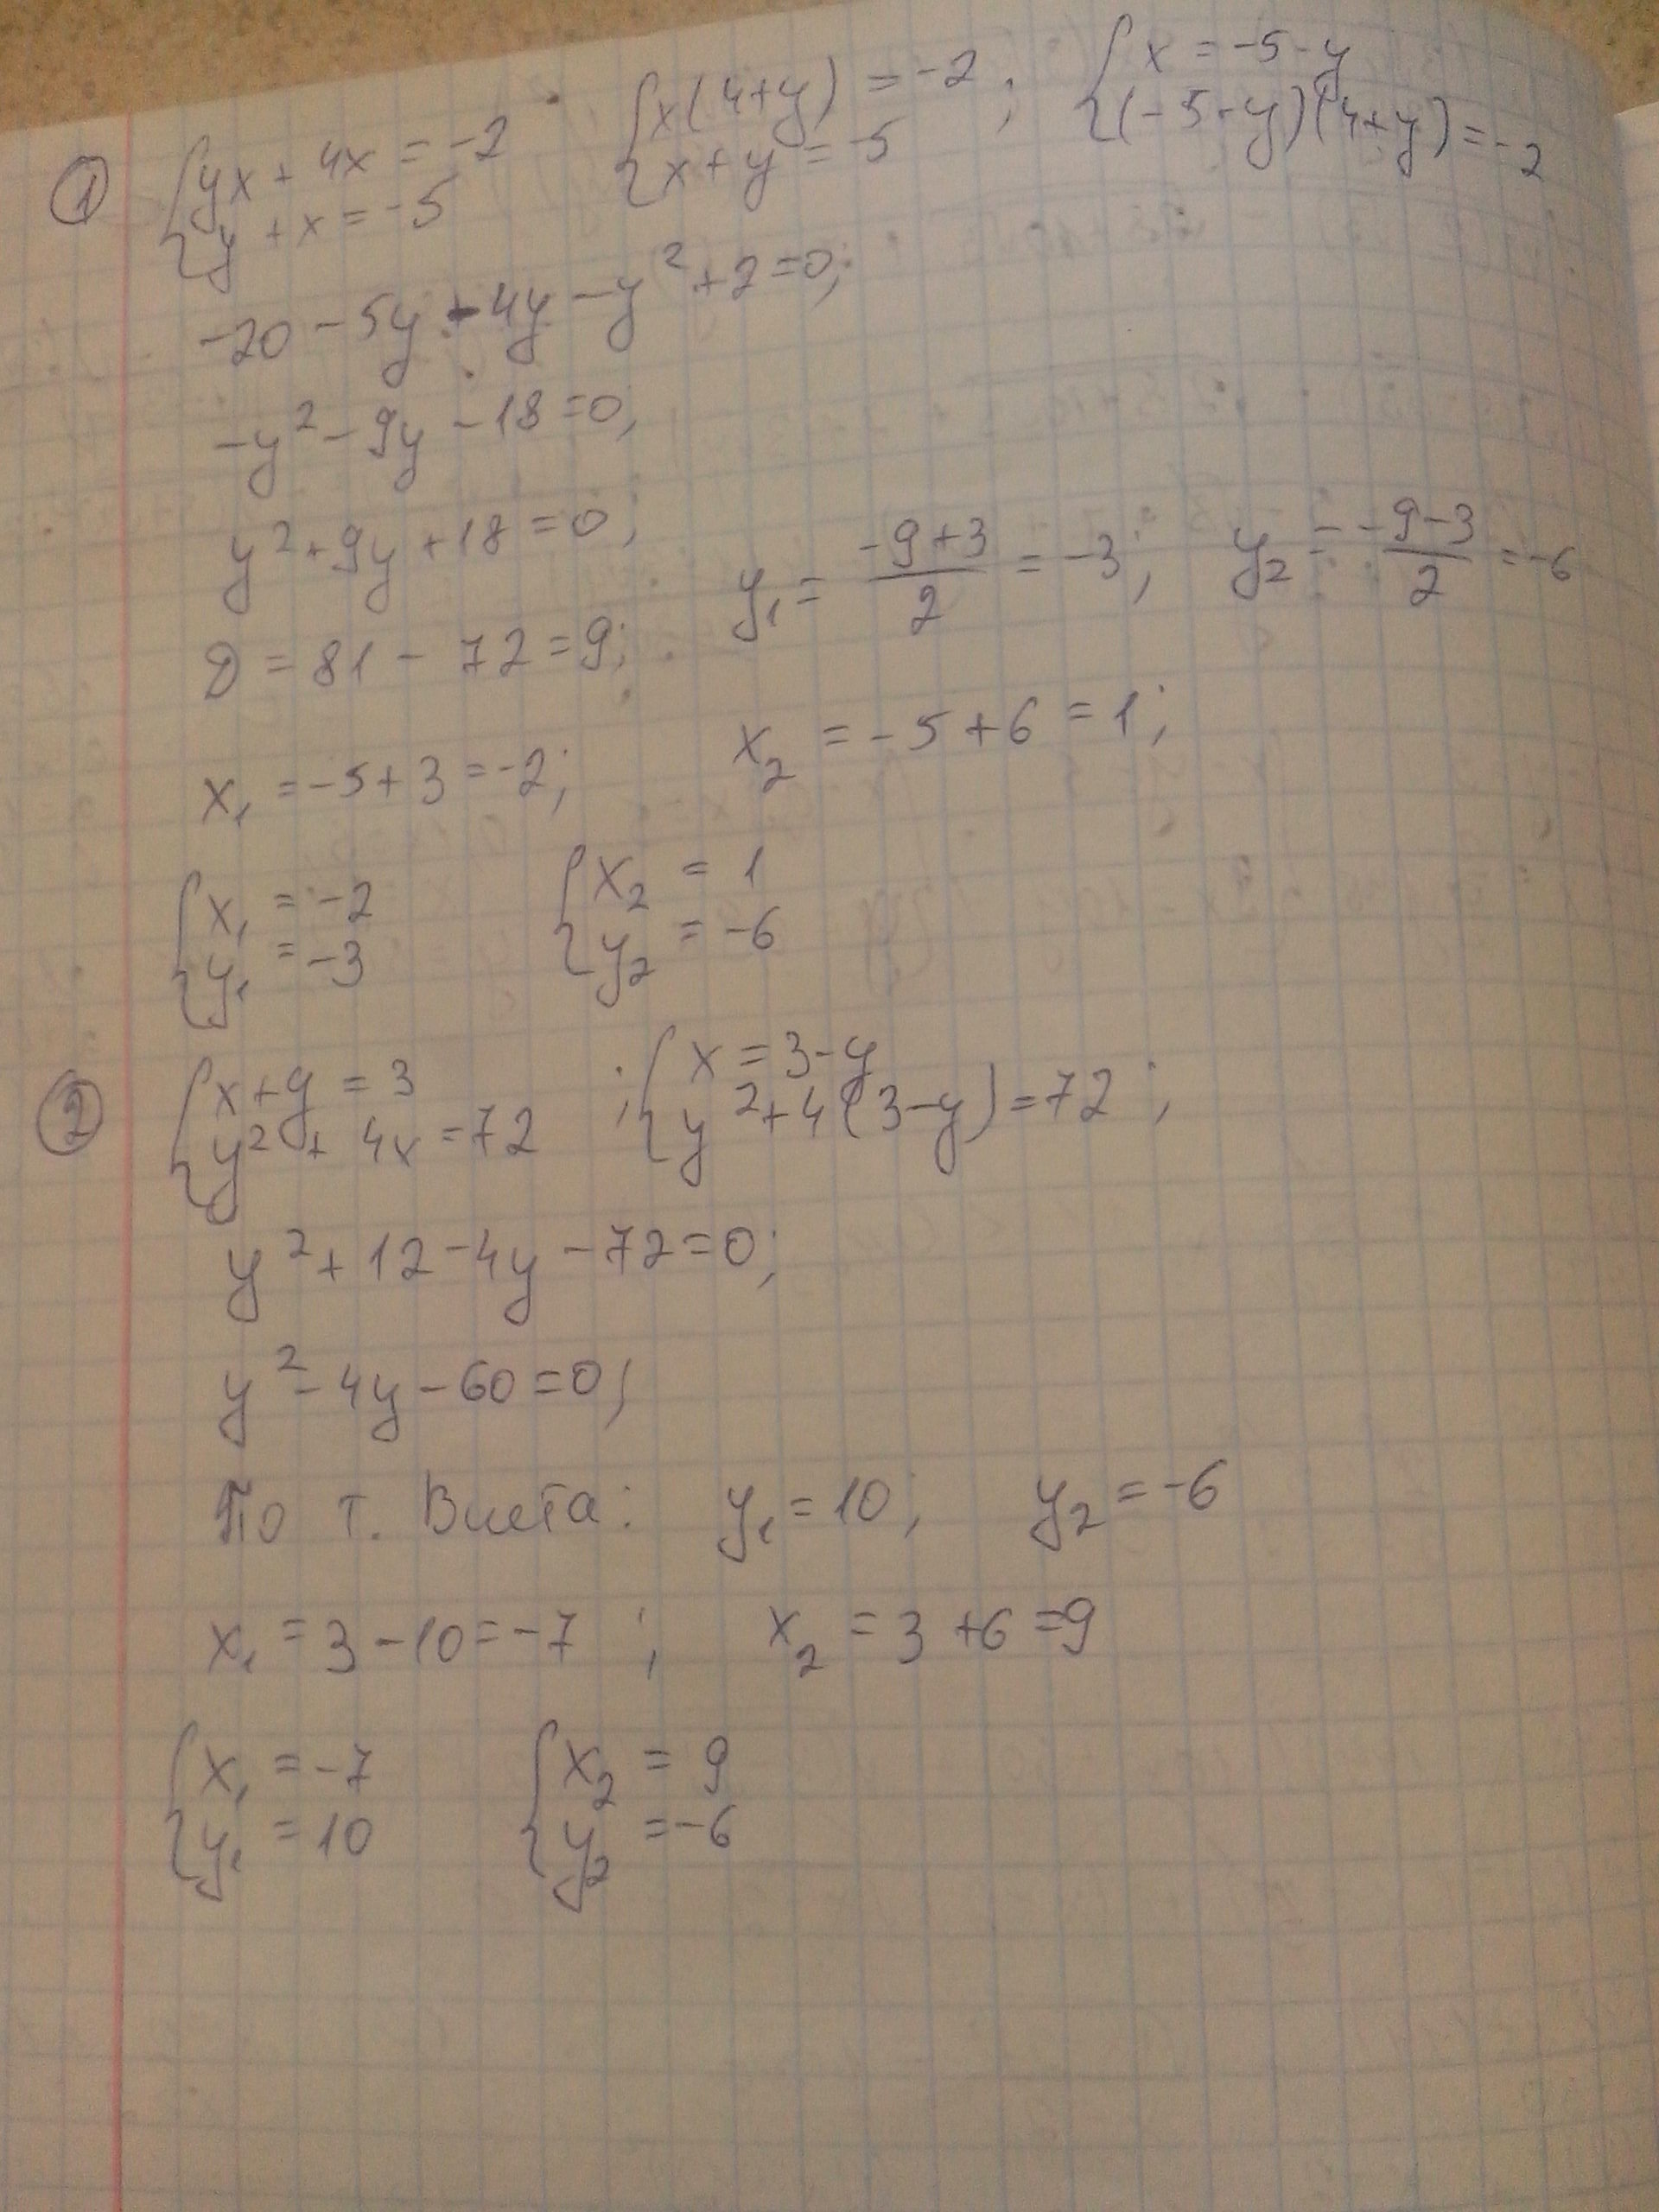 ① { yx + 4x = -2 { x(4+y) = -2 ; { x = -5-y
{ y + x = -5 { x + y = -5 { (-5-y)(4+y) = -2
-20 - 5y - 4y - y² + 2 = 0;
-y² - 9y - 18 = 0;
y² + 9y + 18 = 0;
D = 81 - 72 = 9; y₁ = (-9+3)/2 = -3; y₂ = (-9-3)/2 = -6
x₁ = -5+3 = -2; x₂ = -5+6 = 1;
{ x₁ = -2 { x₂ = 1
{ y₁ = -3 { y₂ = -6
② { x+y = 3 ; { x = 3-y
{ y² + 4x = 72 { y² + 4(3-y) = 72 ;
y² + 12 - 4y - 72 = 0;
y² - 4y - 60 = 0;
По т. Виета: y₁ = 10; y₂ = -6
x₁ = 3 - 10 = -7 ; x₂ = 3 + 6 = 9
{ x₁ = -7 { x₂ = 9
{ y₁ = 10 { y₂ = -6